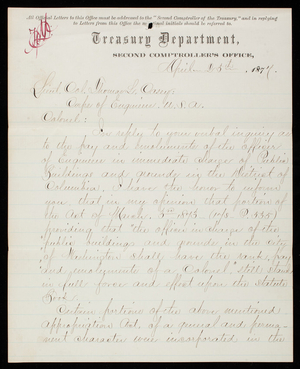 All Official Letters to this Office must be addressed to the "Second Comptroller of the Treasury," and in replying
to Letters from this Office the initials should be referred to.
Treasury Department,
SECOND COMPTROLLER'S OFFICE,
April 25th, 1877.
Lieut. Col. Thomas L. Casey,
Corps of Engineers, U.S.A.
Colonel:
In reply to your verbal inquiry as
to the pay and emoluments of the officer
of Engineers in immediate charge of Public
Buildings and grounds in the District of
Columbia, I have the honor to inform
you that in my opinion that portion of
the Act of March 3rd 1873
providing that "the officer in charge of the
public buildings and grounds in the city
of Washington shall have the rank, pay
and emoluments of a Colonel," still stands
in full force and effect upon the Statute
Book.
Certain portions of the above mentioned
appropriation Act of a general and perma-
nent character were incorporated in the